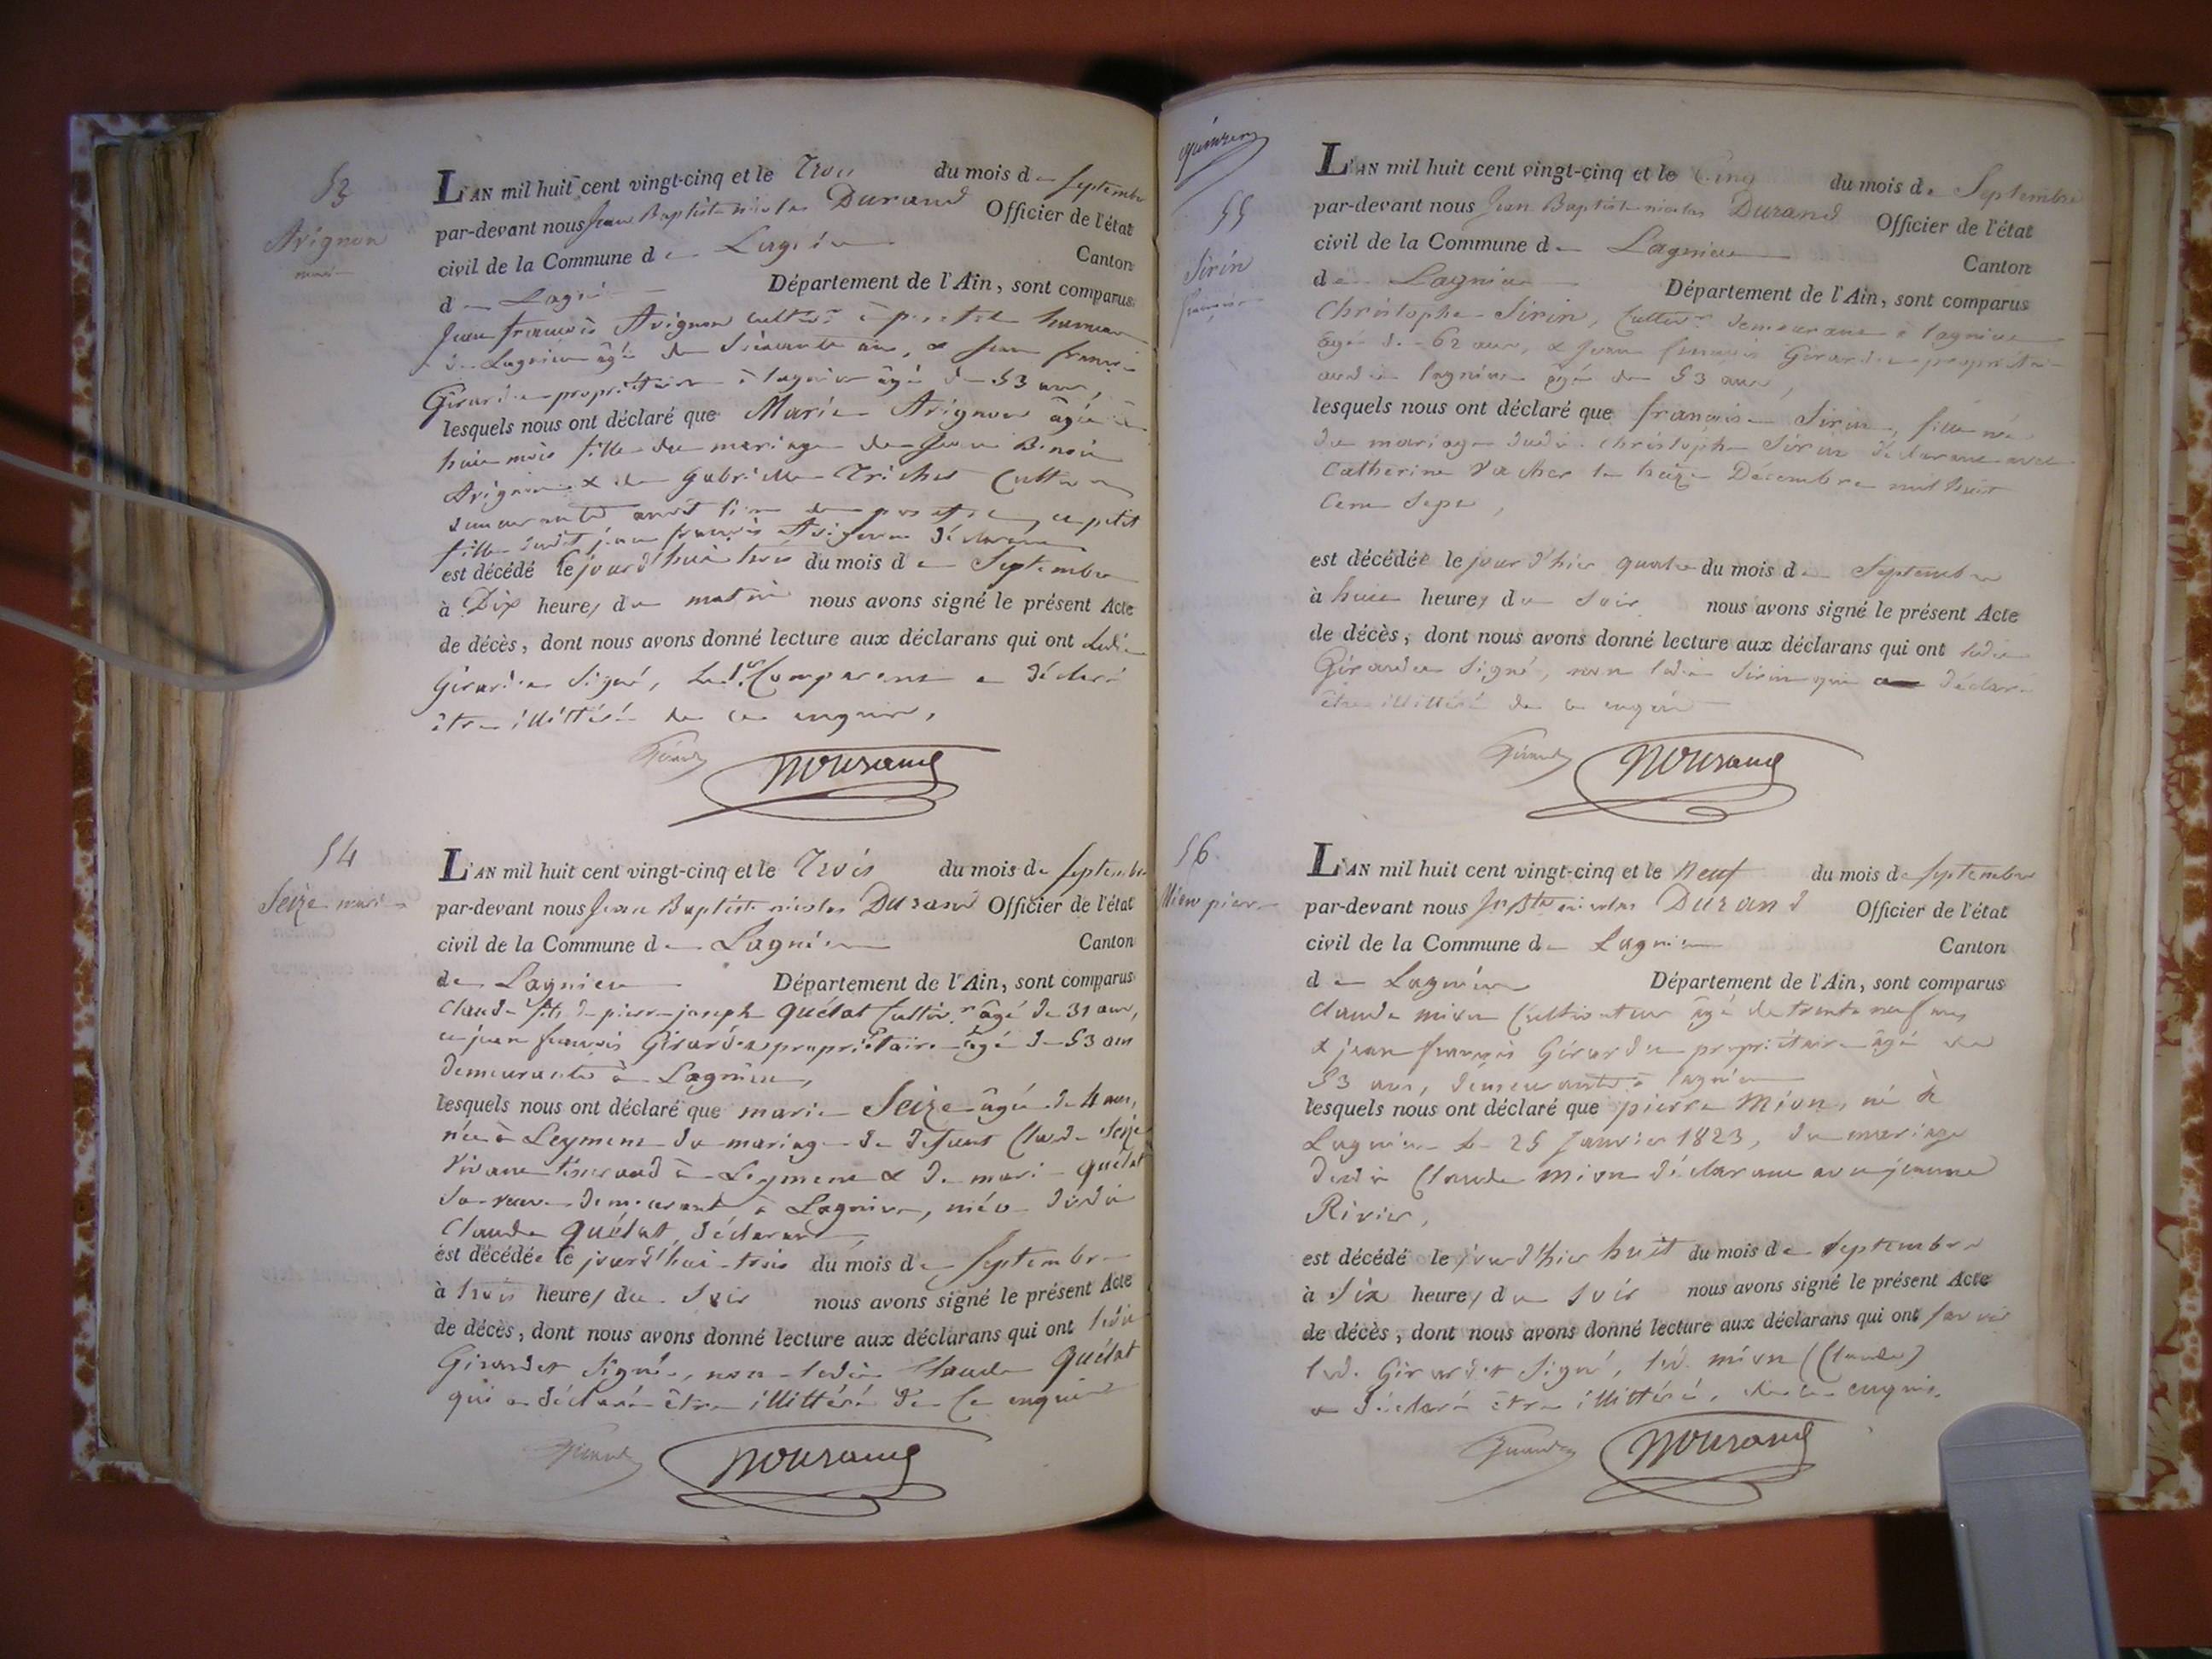 53
Avignon
marie
L'AN mil huit cent vingt-cinq et le Trois du mois de Septembre
par-devant nous Jean Baptiste nicolas Durand Officier de l'état
civil de la Commune de Lagnieu Canton
de Lagnieu Département de l'Ain, sont comparus
Jean françois Avignon cultivr à hameau
de Lagnieu âgé de ans, & jean françois
Girardet propriétaire à lagnieu âgé de 53 ans,
lesquels nous ont déclaré que Marie Avignon âgée de
huit mois fille du mariage de Benoit
Avignon & de gabrielle Trichet
demeurants audit lieu de petite
fille dudit jean françois Avignon déclarant
est décédé le jourd'hui trois du mois de Septembre
à Dix heures du matin nous avons signé le présent Acte
de décès, dont nous avons donné lecture aux déclarans qui ont ledit
Girardet signé, Led. 1er Comparant a déclaré
être illittéré de ce enquis,
Girardet NDurand
54
Seize marie
L'AN mil huit cent vingt-cinq et le Trois du mois de Septembre
par-devant nous Jean Baptiste nicolas Durand Officier de l'état
civil de la Commune de Lagnieu Canton
de Lagnieu Département de l'Ain, sont comparus
Claude fils de pierre joseph quélat cultivr âgé de 31 ans,
et jean francois Girardet propriétaire âgé de 53 ans
demeurants à Lagnieu,
lesquels nous ont déclaré que marie Seize âgée de 4 ans,
née à Leyment du mariage de défunt Claude Seize
vivant tisserand à Leyment & de marie quélat
sa veuve demeurant à Lagnieu, nièce dudit
Claude quélat, déclarant,
est décédée le jourd'hui trois du mois de Septembre
à trois heures du Soir nous avons signé le présent Acte
de décès, dont nous avons donné lecture aux déclarans qui ont ledit
Girardet signé, non ledit Claude quélat
qui a déclaré être illittéré de ce enquis
Girardet NDurand
55
Sirin
françoise
L'AN mil huit cent vingt-cinq et le Cinq du mois de Septembre
par-devant nous Jean Baptiste nicolas Durand Officier de l'état
civil de la Commune de Lagnieu Canton
de Lagnieu Département de l'Ain, sont comparus
Christophe Sirin, Cultivr demeurant à lagnieu
âgé de 62 ans, & jean françois Girardet propriétaire
aud. lagnieu âgé de 53 ans,
lesquels nous ont déclaré que françoise Sirin, fille née
du mariage dudit Christophe Sirin déclarant avec
Catherine Vacher le treize Décembre mil huit
Cent Sept,
est décédée le jour d'hier quatre du mois de Septembre
à huit heures du Soir nous avons signé le présent Acte
de décès, dont nous avons donné lecture aux déclarans qui ont ledit
Girardet signé, non ledit Sirin qui a déclaré
être illittéré de ce enquis
Girardet NDurand
56
Mion pierre
L'AN mil huit cent vingt-cinq et le Neuf du mois de Septembre
par-devant nous Jn Bte nicolas Durand Officier de l'état
civil de la Commune de Lagnieu Canton
de Lagnieu Département de l'Ain, sont comparus
Claude mion Cultivateur âgé de trente neuf ans,
& jean françois Girardet propriétaire âgé de
53 ans, demeurants à lagnieu
lesquels nous ont déclaré que pierre Mion, né à
Lagnieu le 25 Janvier 1823, du mariage
dudit Claude mion déclarant avec jeanne
Rivier,
est décédé le jourd'hier huit du mois de Septembre
à Six heures du Soir nous avons signé le présent Acte
de décès, dont nous avons donné lecture aux déclarans qui ont savoir
led. Girardet signé, led. mion (Claude)
a déclaré être illittéré, de ce enquis.
Girardet NDurand